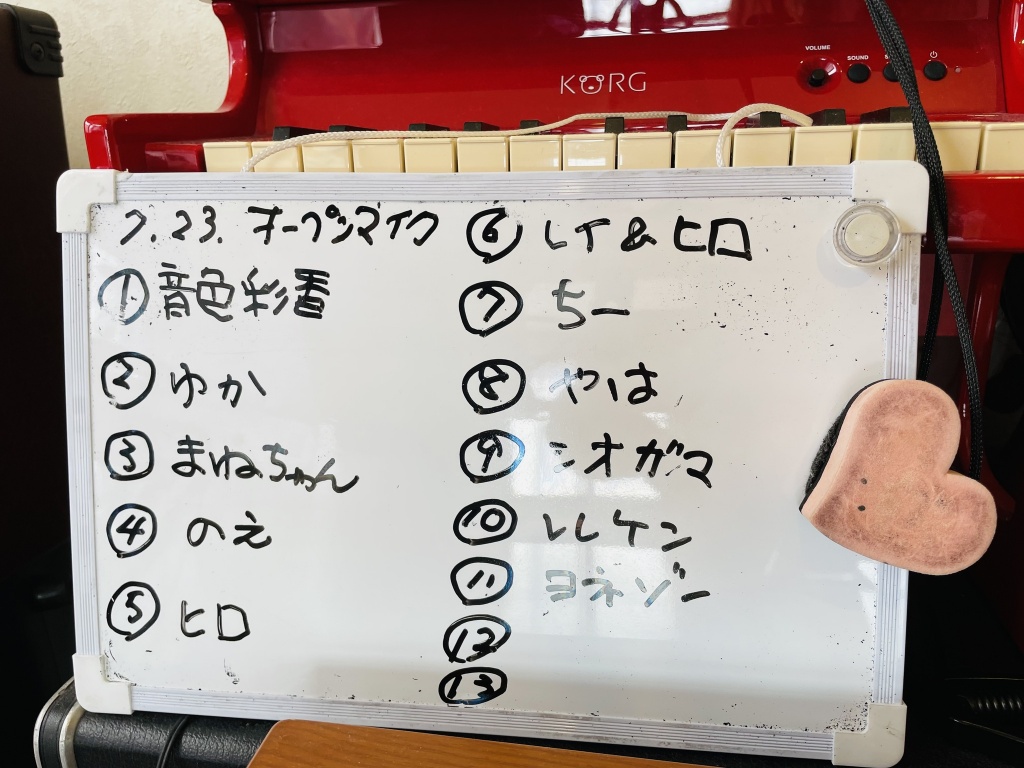 VOLUME
SOUND
KORG
7.23. オープンマイク
① 音色彩香
② ゆか
③ まねちゃん
④ のえ
⑤ ヒロ
⑥ レイ&ヒロ
⑦ ちー
⑧ やは
⑨ シオガマ
⑩ レレケン
⑪ ヨネゾー
⑫
⑬